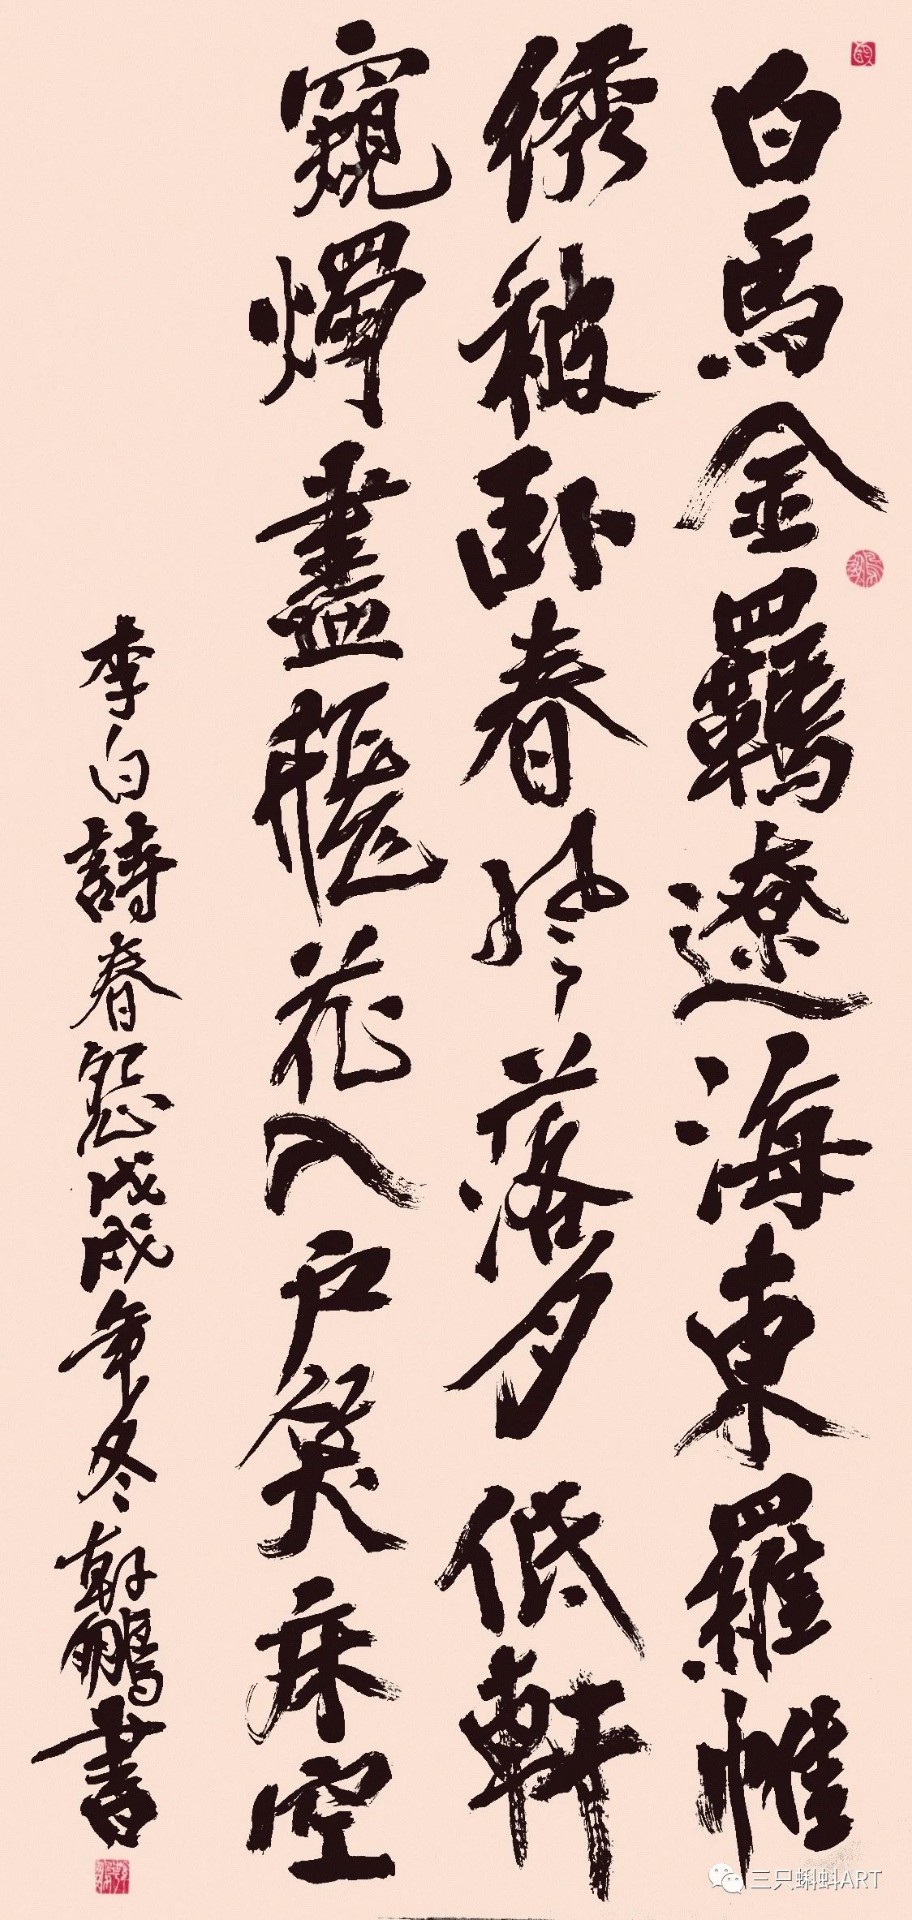 白馬金羈遼海東羅帷
綉被卧春風落月低軒
窺燭盡飛花入户笑床空
李白詩春怨戊戌年冬翰鵬書
三只蝌蚪ART